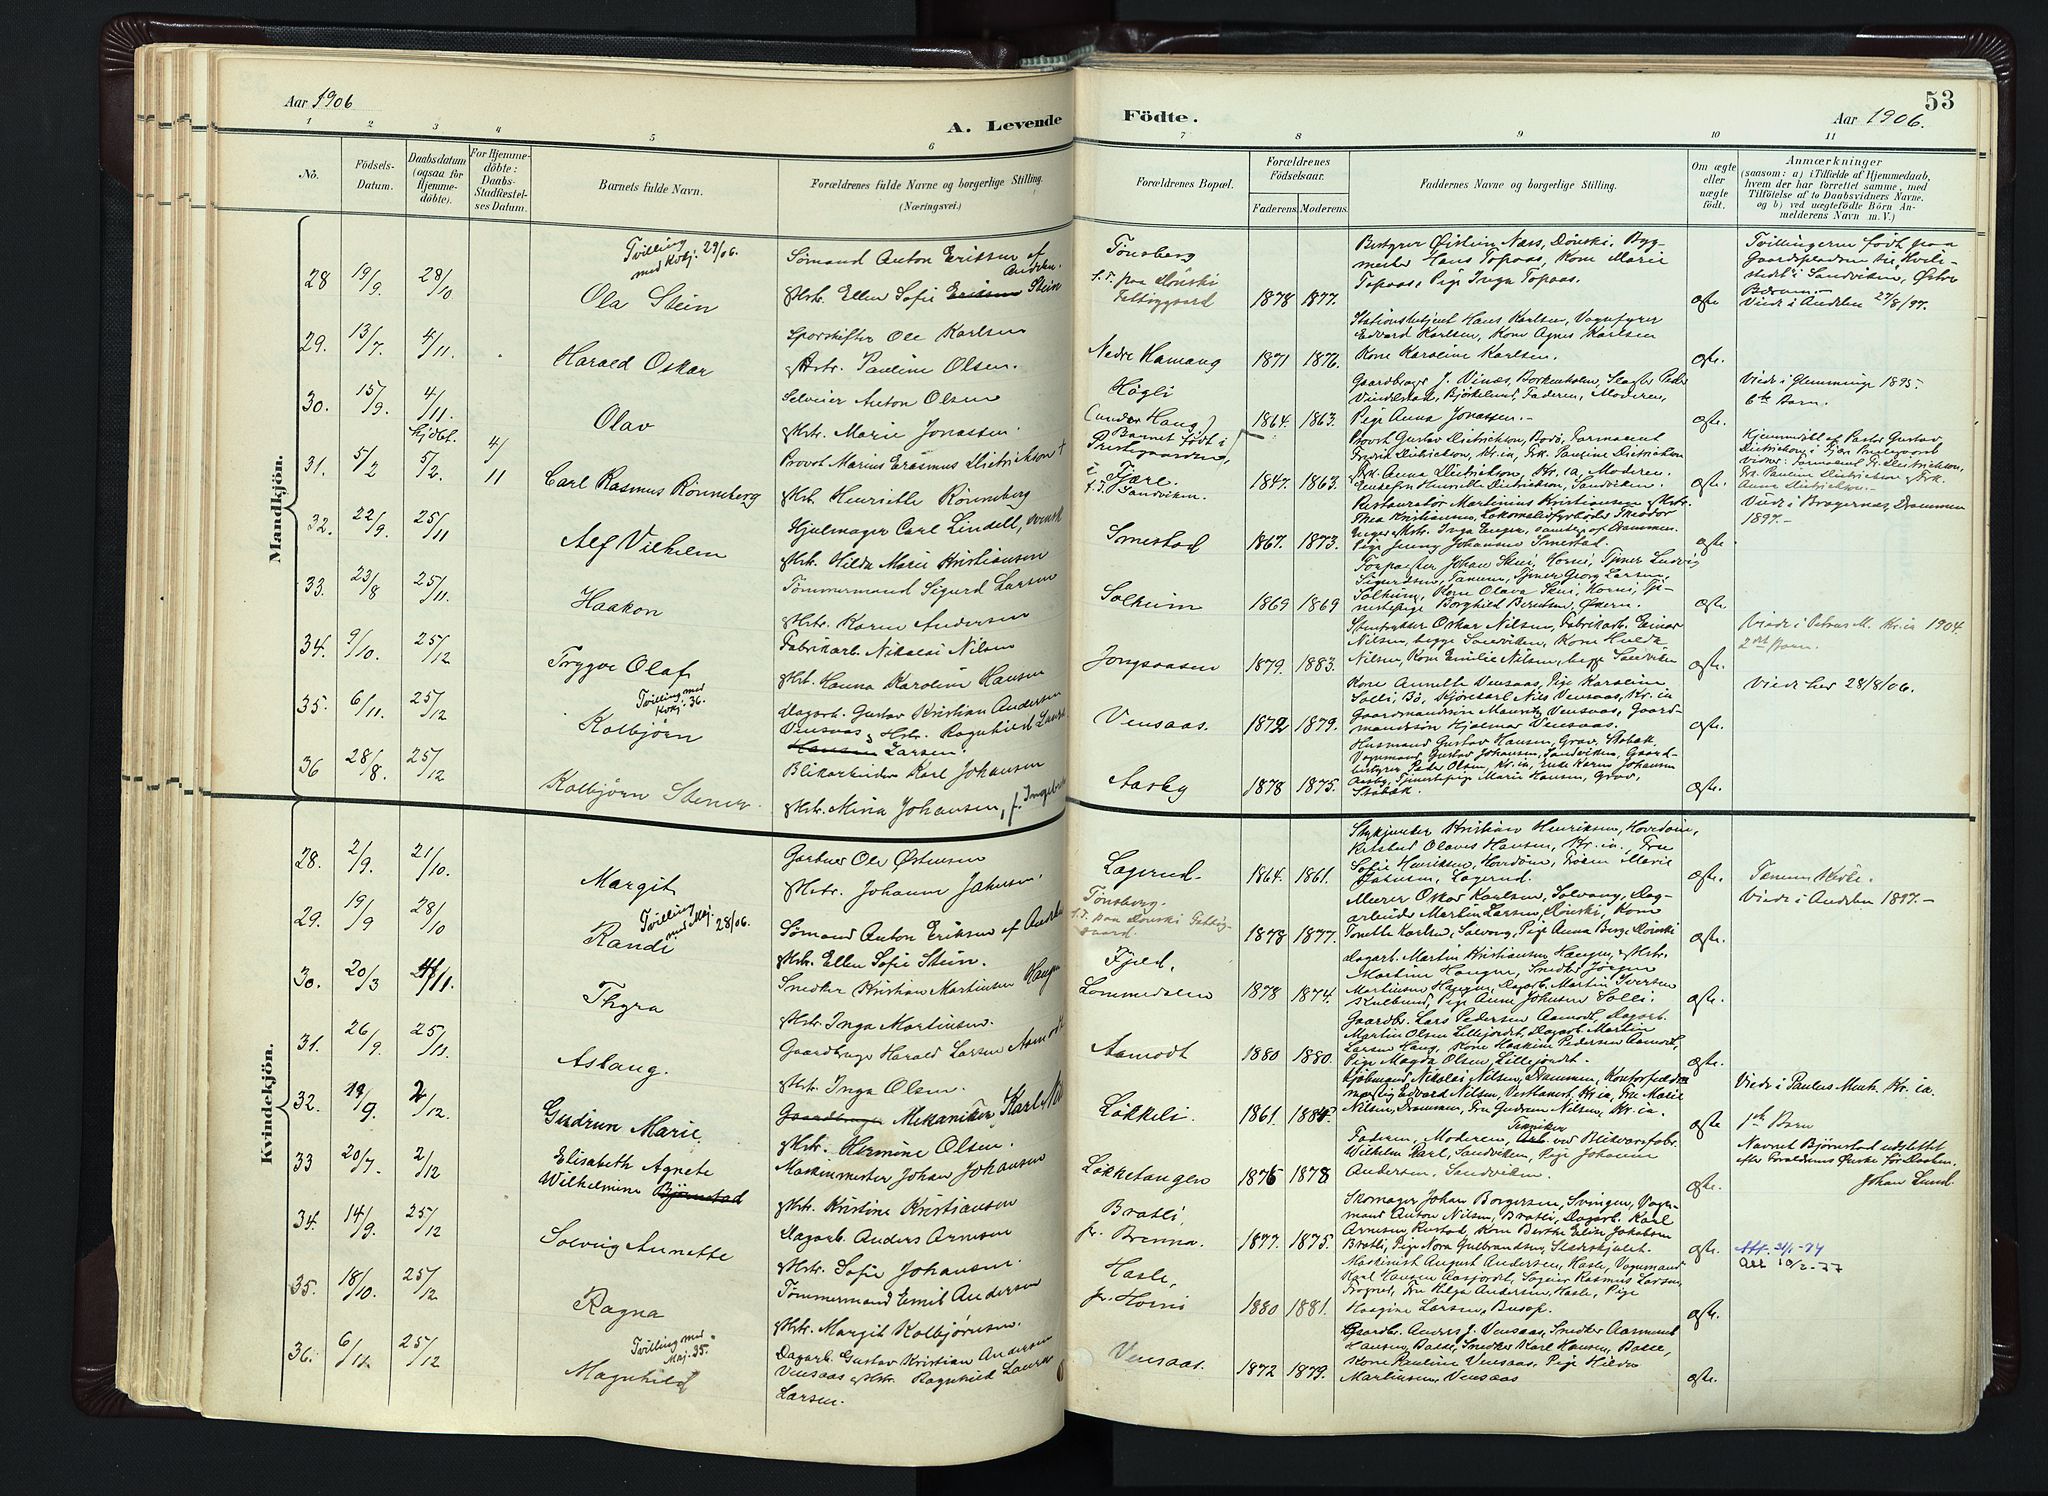 Aar 1906
A. Levende
Födte.
53
Aar 1906.
1 2 3 4 5 6 7 8 9 10 11
No.
Födsels-
Datum.
Daabsdatum
(ogsaa for
Hjemme-
döbte).
For Hjemme-
döbte:
Daabs-
Stadfæstel-
ses Datum.
Barnets fulde Navn.
Forældrenes fulde Navne og borgerlige Stilling.
(Næringsvei.)
Forældrenes Bopæl.
Forældrenes
Födselsaar.
Faderens. Moderens.
Faddernes Navne og borgerlige Stilling.
Om ægte
eller
uægte
födt.
Anmærkninger
(saasom: a) i Tilfælde af Hjemmedaab,
hvem der har forrettet samme, med
Tilföielse af to Daabsvidners Navne,
og b) ved uægtefödte Börn An-
melderens Navn m. V.)
Mandkjön.
28 19/9. 28/10
Tvilling
med Kvkj. 29/06.
Ola Stein
Sømand Anton Eriksen af
Andebu.
Hstr. Ellen Sofie Eriksen Stein
Tönsberg
s.T. paa Dönski
Fattiggaard
1878 1877.
Bestyrer Öistein Næss, Dönski, Byg-
mester Hans Topaas, Kone Marie
Topaas, Pige Inga Topaas.
ægte
Tvillingerne födt paa
Gaardspladsen til Hvile-
stedet i Sandviken, Östre
Bærum.
Viede i Andebu 27/8/97.
29. 13/7. 4/11.
Harald Oskar
Sporskifter Ole Karlsen
Hstr. Pauline Olsen.
Nedre Hamang
1871 1876.
Stationsbetjent Hans Karlsen, Vognfyrer
Edvard Karlsen, Kone Agnes Karlsen
Kone Karoline Karlsen.
ægte.
30. 15/9. 4/11.
Olav
Selveier Anton Olsen
Hstr. Marie Jonassen.
Högli
(under Haug)
1864. 1863.
Gaardbruger J. Vinæs, Borkenholm, Slagter Peder
Vindelstad, Björkelund, Faderen, Moderen,
Pige Anna Jonassen.
ægte.
Viede i Glemminge 1895.
6te Barn.
31. 5/2 hjdbt. 5/2. 4/11
Carl Rasmus Rönneberg
Provst Marius Erasmus Dietrichson †
Hstr. Henriette Rönneberg
Barnet födt i
Prestegaarden,
i Fjære.
s.T. Sandviken.
1847. 1863.
Provst Gustav Dietrichson, Bodö, Farmaceut
Fredrik Dietrichson, Kr.ia, Frk. Pauline Dietrichson
Frk. Anna Dietrichson, Kr.ia, Moderen.
Enkefru Henriette Dietrichson, Sandviken.
ægte.
Hjemmedöbt af Pastor Gustav
Dietrichson i Fjære Prestegaard
Vidner: Farmaceut Fr. Dietrichson,
Frk. Pauline Dietrichson & Frk.
Anna Dietrichson.
32. 22/9. 25/11
Alf Vilhelm
Hjulmager Carl Lindell, svensk
Hstr. Hilda Marie Kristiansen
Smestad
1867. 1873.
Restauratør Martinius Kristiansen, Hstr.
Thea Kristiansen, Lokomotivfyrböder Theodor
Enger, Hstr. Inga Enger, samtlige af Drammen.
Pige Jenny Johansen Smestad.
ægte.
Viede i Bragernes, Drammen
1897.
33. 23/8 25/11.
Haakon
Tömmermand Sigurd Larsen
Hstr. Karen Andersen
Solheim
1869 1869
Forpagter Johan Skui, Horni, Tjener Ludvig
Sigurdsen, Tanum, Tjener Georg Larsen,
Solheim, Kone Olava Skui, Horni, Tje-
nestepige Borghild Berntsen, Økern.
ægte.
34. 9/10. 25/12
Trygve Olaf
Fabrikarb. Nikolai Nilsen
Hstr. Hanna Karoline Hansen
Jongsaasen
1879. 1883.
Stentrykker Oskar Nilsen, Fabrikarb. Einar
Nilsen, begge Sandviken, Kone Hulda
Nilsen, Kone Emilie Nilsen, begge Sandviken
ægte.
Viede i Petrus M. Kr.ia 1904.
2det Barn.
35. 6/11. 25/12
Tvilling med
Kvkj. 36.
Kolbjörn
Dagarb. Gustav Kristian Andersen
Vensaas, Hstr. Ragnhild Laura
Hansen Larsen.
Vensaas.
1872 1879.
Kone Annette Vensaas, Pige Karoline
Solli, Bö, Kjörekarl Nils Vensaas, Kr.ia
Gaardmandssön Mauritz Vensaas, Gaard-
mandssön Hjalmar Vensaas.
ægte.
Viede her 28/8/06.
36 28/8. 25/12
Kolbjörn Stener.
Blikarbeider Karl Johansen
Hstr. Mina Johansen, f. Ingebre
Aasby
1878 1875.
Husmand Gustav Hansen, Grav, Stabæk,
Vognmand Gustav Johansen, Sandviken, Gaard-
bestyrer Peder Olsen, Kr.ia, Enke Karen Johansen
Aasby, Tjenestepige Marie Hansen, Grav,
Stabæk.
ægte.
Kvindekjön.
28. 2/9. 21/10.
Margit
Gartner Ole Østensen
Hstr. Johanne Jakobsen.
Lagerud.
1864. 1861.
Stykjunker Kristian Henriksen, Hovedöen,
Retsbud Olaves Hansen, Kr.ia., Fru
Sofie Henriksen, Hovedöen, Fröken Marie
Jakobsen, Lagerud.
ægte.
Tanum Kirke.
29. 19/9 28/10
Tvilling
med Maj. 28/06.
Randi
Sømand Anton Eriksen af Andebu
Hstr. Ellen Sofie Stein.
Tönsberg.
s.T. paa Dönski Fattig-
gaard.
1878 1877.
Murer Oskar Karlsen, Solvang, Dag-
arbeider Martin Larsen, Dönski, Kone
Tonette Karlsen, Solvang, Pige Anna Berg, Dönski
ægte.
Viede i Andebu 1897.
30. 20/3 4/11.
Thyra
Snedker Kristian Martinsen Haugen
Hstr. Inga Martinsen.
Fjeld,
Lommedalen
1878 1874.
Dagarb. Martin Kristiansen Haugen, Hstr.
Martine Haugen, Snedker Jörgen
Martinsen Haugen, Dagarb. Martin Iversen
Kulbund, Pige Anne Johnsen Solli.
ægte.
31. 26/9. 25/11.
Aslaug.
Gaardbruger Harald Larsen Aamodt
Hstr. Inga Olsen.
Aamodt
1880 1880.
Gaardbr. Lars Pedersen Aamodt, Dagarb.
Martin Olsen Lillejordet, Dagarb. Martin
Larsen Haug, Kone Haakine Pedersen Aamodt,
Pige Magda Olsen, Lillejordet.
ægte.
32. 14/9. 2/12.
Gudrun Marie.
Gaardbruger Mekaniker, Karl Nil
Hstr. Hermine Olsen.
Løkkeli.
1861. 1884.
Kjöbmand Nikolai Nilsen, Drammen, Kontorfuldmæ
Edvard Nilsen, Vestkanten, Kr.ia, Fru Marie
Nilsen, Drammen, Fru Gudrun Nilsen, Kr.ia.
ægte
Viede i Paulus Menh. Kr.ia.
1ste Barn
33 20/7. 2/12
Elisabeth Agnete
Wilhelmine Bjørnstad
Maskinmester Johan Johansen
Hstr. Kristine Kristiansen
Løkketangen
1876 1878
Faderen, Moderen, Tekniker Arb. ved Blikvarefabr.
Wilhelm Karl, Sandviken, Pige Johanne
Andersen, Sandviken.
ægte.
Navnet Bjørnstad udslettet
efter Forældrenes Ønske før Daaben.
Johan Lund.
34. 14/9. 25/12
Solveig Annette
Dagarb. Anders Arnesen
Hstr. Sofie Johansen.
Bratli,
fr. Brenna.
1877. 1875.
Skomager Johan Borgersen, Svingen, Vogn-
mand Anton Nilsen, Bratli, Dagarb. Karl
Arnesen, Rustad, Kone Berthe Elise Jakobsen
Bratli, Pige Nora Gulbrandsen, Stadskjulet.
ægte.
Att. 21/1-74
Att 10/2-77
35. 18/10. 25/12
Ragna
Tömmermand Emil Andersen
Hstr. Margit Kolbjørnsen.
Hasle,
fr. Horni
1880 1881.
Maskinist August Andersen, Hasle, Vognmand
Karl Haugen Aasjordet, Sagmester Rasmus Larsen,
Frogner, Fru Helga Andersen, Hasle, Pige
Haagine Larsen, Busop.
ægte.
36. 6/11 25/12
Tvilling med
Maj. 35.
Magnhild
Dagarb. Gustav Kristian Andersen
Vensaas Hstr. Ragnhild Laura
Larsen.
Vensaas.
1872 1879.
Gaardbr. Anders J. Vensaas, Snedker Aasmund
Hansen, Balse, Snedker Karl Hansen, Balse,
Kone Pauline Vensaas, Pige Hilda
Martinsen, Vensaas
ægte.